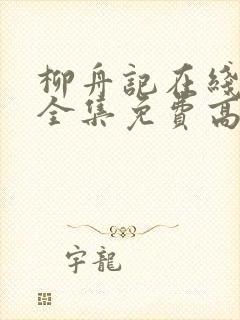 柳舟記在綫
全集免費高
宇龍